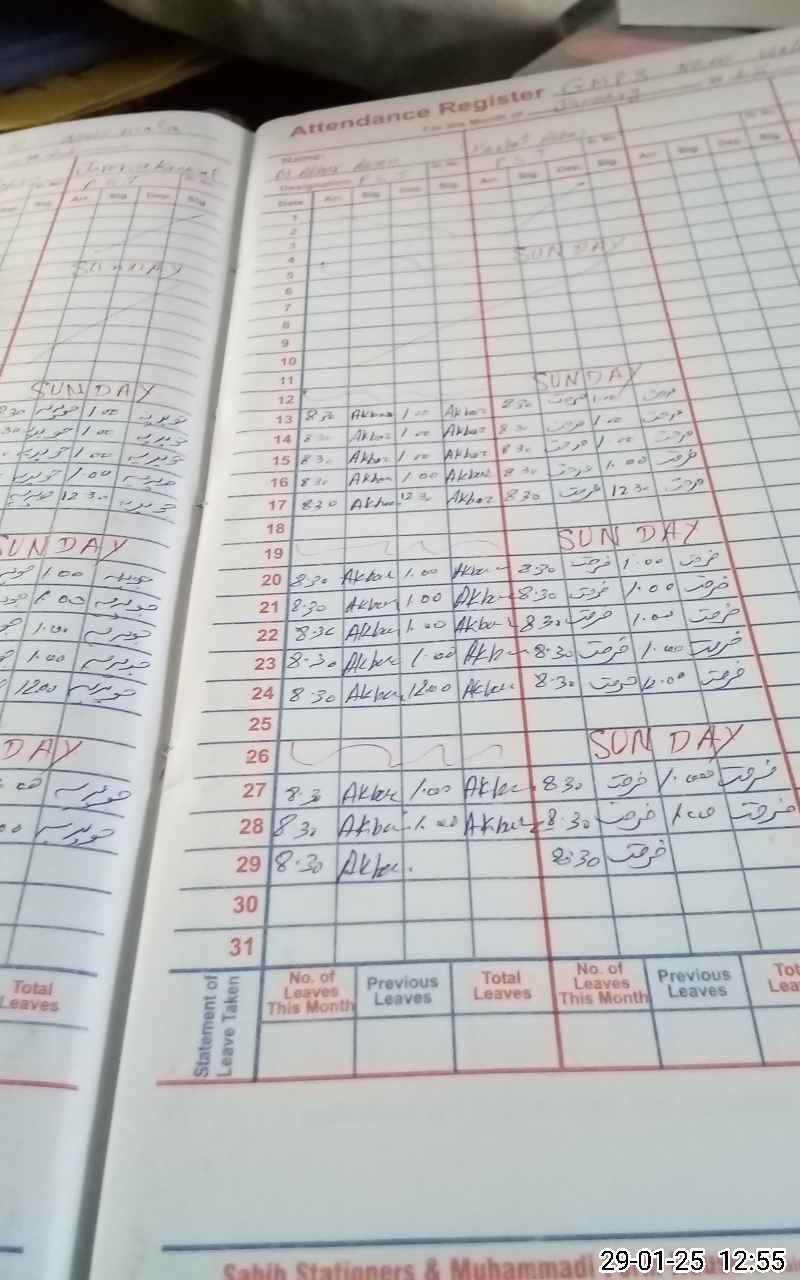 Attendance Register GMPS
For the Month of January
Name:
Designation P.S.T P.S.T
Date Arr. Sig. Dep. Sig. Arr. Sig. Dep. Sig. Arr. Sig. Dep. Sig.
1
2
3
4
5 SUNDAY
6
7
8
9
10
11
12 SUNDAY
13 8 30 Akbar 1 00 Akbar 8 30 فرحت 1 00 فرحت
14 8 30 Akbar 1 00 Akbar 8 30 فرحت 1 00 فرحت
15 8 30 Akbar 1 00 Akbar 8 30 فرحت 1 00 فرحت
16 8 30 Akbar 1.00 Akbar 8 30 فرحت 1.00 فرحت
17 8 30 Akbar 12 30 Akbar 8 30 فرحت 12 30 فرحت
18
19 SUNDAY
20 8.30 Akbar 1.00 Akbar 8.30 فرحت 1.00 فرحت
21 8.30 Akbar 1.00 Akbar 8.30 فرحت 1.00 فرحت
22 8.30 Akbar 1.00 Akbar 8.30 فرحت 1.00 فرحت
23 8.30 Akbar 1.00 Akbar 8.30 فرحت 1.00 فرحت
24 8.30 Akbar 12.00 Akbar 8.30 فرحت 12.00 فرحت
25
26 SUNDAY
27 8.30 Akbar 1.00 Akbar 8.30 فرحت 1.00 فرحت
28 8.30 Akbar 1.00 Akbar 8.30 فرحت 1.00 فرحت
29 8.30 Akbar. 8.30 فرحت
30
31
Statement of Leave Taken
No. of Leaves This Month Previous Leaves Total Leaves No. of Leaves This Month Previous Leaves
Sahib Stationers & Muhammadi
P.S.T
Arr. Sig. Dep. Sig.
SUNDAY
SUNDAY
8 30 جویریہ 1.00 جویریہ
جویریہ 1.00 جویریہ
جویریہ 1.00 جویریہ
جویریہ 1.00 جویریہ
جویریہ 12 30 جویریہ
SUNDAY
1.00 جویریہ
1.00 جویریہ
1.00 جویریہ
1.00 جویریہ
12.00 جویریہ
DAY
00 جویریہ
00 جویریہ
Total Leaves
29-01-25 12:55